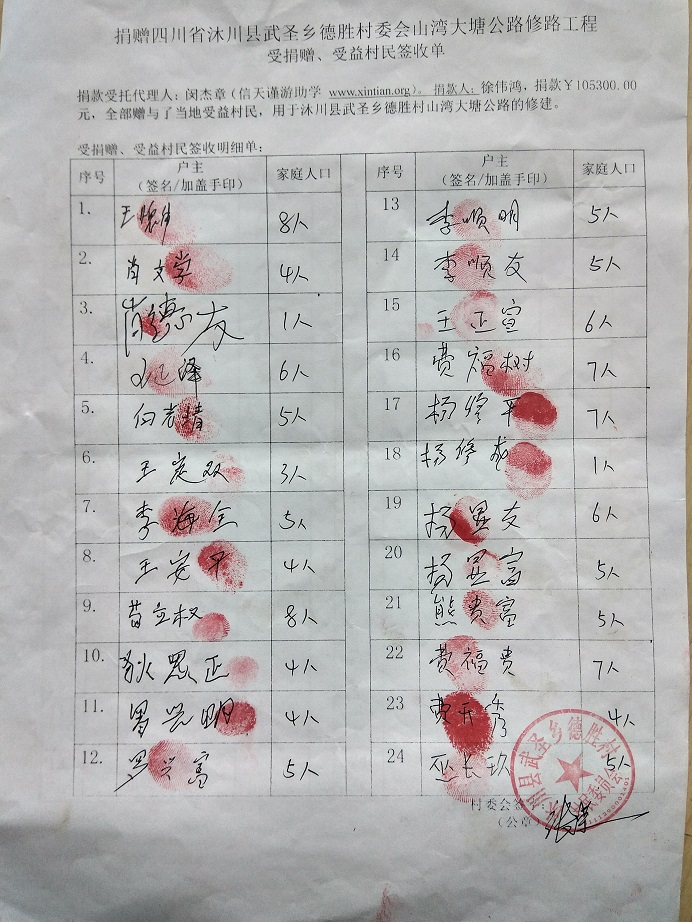 捐赠四川省沐川县武圣乡德胜村委会山湾大塘公路修路工程
受捐赠、受益村民签收单
捐款受托代理人：闵杰章（信天谨游助学 www.xintian.org）。捐款人：徐伟鸿，捐款￥105300.00
元，全部赠与了当地受益村民，用于沐川县武圣乡德胜村山湾大塘公路的修建。
受捐赠、受益村民签收明细单：
序号 户主（签名/加盖手印） 家庭人口
1. 8人
2. 肖文学 4人
3. 1人
4. 6人
5. 5人
6. 王定双 3人
7. 李海全 5人
8. 王安平 4人
9. 苟立权 8人
10. 狄思正 4人
11. 罗兴明 4人
12. 罗兴富 5人
序号 户主（签名/加盖手印） 家庭人口
13 李顺明 5人
14 李顺友 5人
15 王正宣 6人
16 费福树 7人
17 杨修平 7人
18 杨修成 1人
19 杨显友 6人
20 杨显富 5人
21 熊贵富 5人
22 费福贵 7人
23 费开秀 4人
24 巫长玖 5人
村委会签字
（公章）
川县武圣乡德胜村